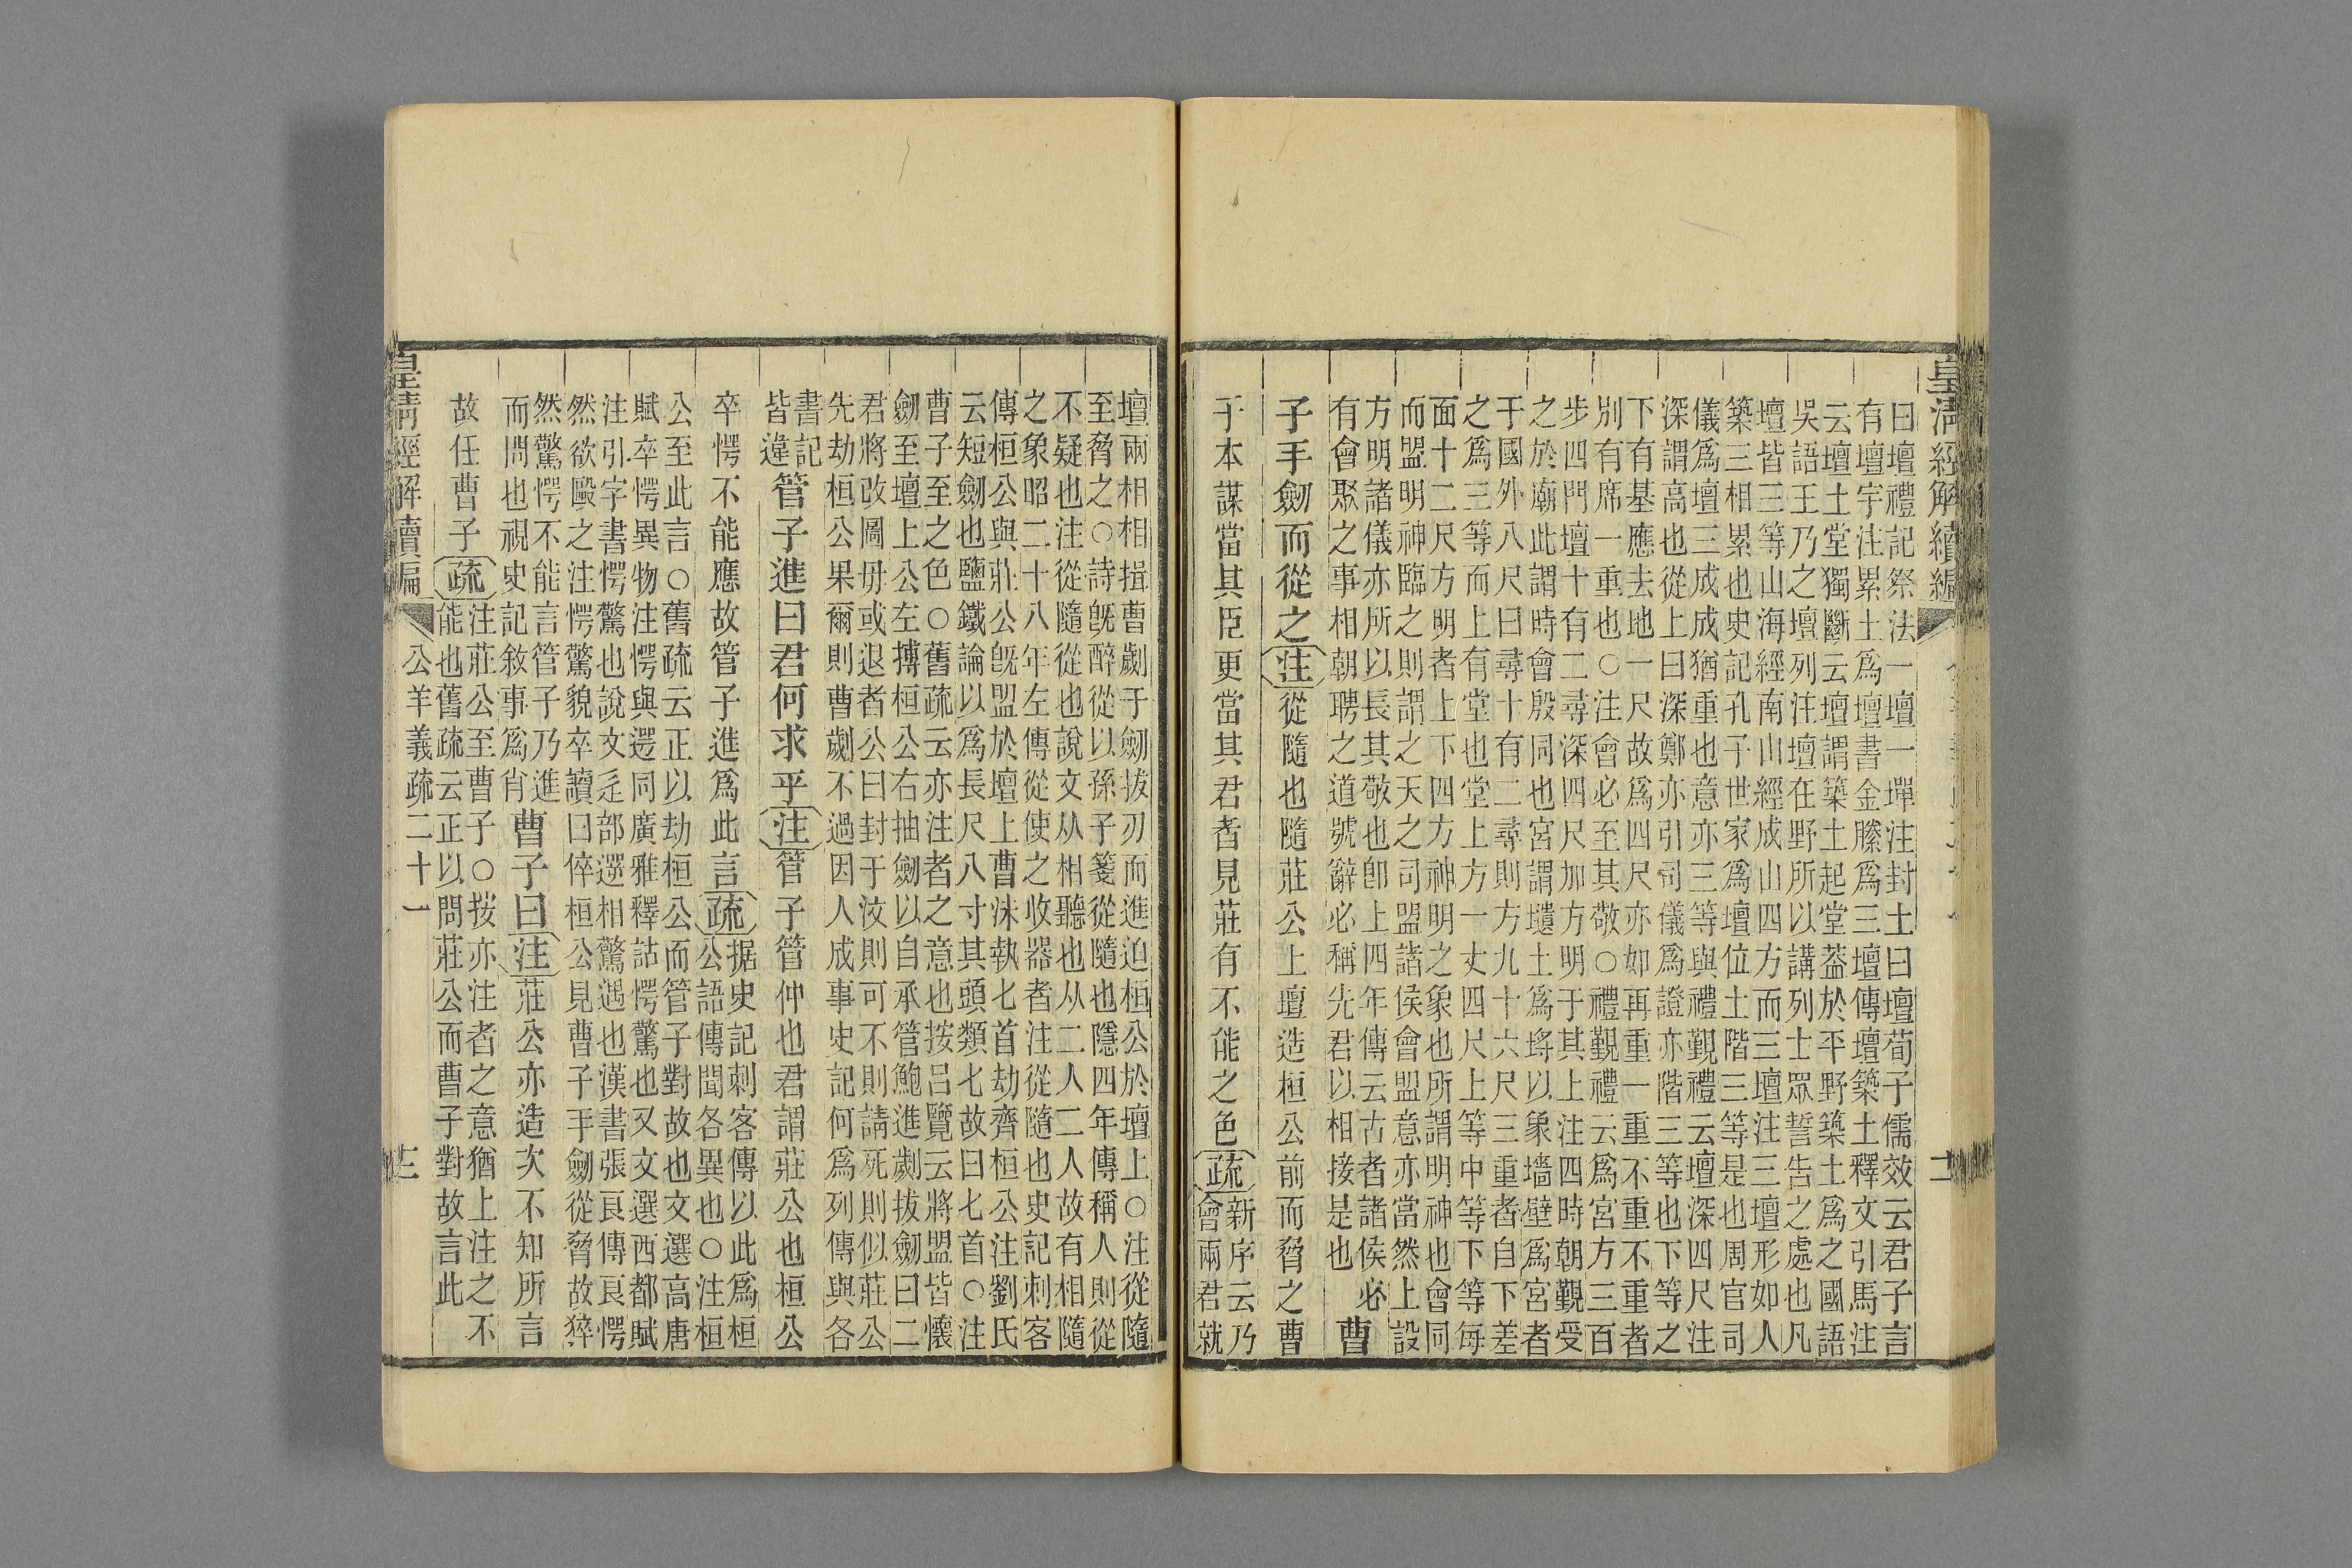 皇清經解續編
曰壇禮記祭法一壇一墠注封土曰壇荀子儒效云君子言
有壇宇注累土爲壇書金縢爲三壇傳壇築土釋文引馬注
云壇土堂獨斷云壇謂築土起堂葢於平野築土爲之國語
吳語王乃之壇列注壇在野所以講列士眾誓告之處也凡
壇皆三等山海經南山經成山四方而三壇注三壇形如人
築三相累也史記孔子世家爲壇位土階三等是也周官司
儀爲壇三成成猶重也意亦三等與禮覲禮云壇深四尺注
深謂高也從上曰深鄭亦引司儀爲證亦階三等也下等之
下有基應去地一尺故爲四尺亦如再重一重不重不重者
別有席一重也○注會必至其敬○禮覲禮云爲宮方三百
步四門壇十有二尋深四尺加方明于其上注四時朝覲受
之於廟此謂時會殷同也宮謂壝土爲埒以象墻壁爲宮者
于國外八尺曰尋十有二尋則方九十六尺三重者自下差
之爲三等而上有堂也堂上方一丈四尺上等中等下等每
面十二尺方明者上下四方神明之象也所謂明神也會同
而盟明神臨之則謂之天之司盟諸侯會盟意亦當然上設
方明諸儀亦所以長其敬也卽上四年傳云古者諸侯必
有會聚之事相朝聘之道號辭必稱先君以相接是也
曹
子手劒而從之注從隨也隨莊公上壇造桓公前而脅之曹
于本謀當其臣更當其君者見莊有不能之色疏
新序云乃
會兩君就
壇兩相相揖曹劌于劒拔刃而進迫桓公於壇上○注從隨
至脅之○詩旣醉從以孫子箋從隨也隱四年傳稱人則從
不疑也注從隨從也說文从相聽也从二人二人故有相隨
之象昭二十八年左傳從使之收器者注從隨也史記刺客
傳桓公與莊公旣盟於壇上曹沬執七首劫齊桓公注劉氏
云短劒也鹽鐵論以爲長尺八寸其頭類七故曰七首○注
曹子至之色○舊疏云亦注者之意也按呂覽云將盟皆懷
劒至壇上公左搏桓公右抽劒以自承管鮑進劌拔劒曰二
君將改圖毋或退者公曰封于汶則可不則請死則似莊公
先劫桓公果爾則曹劌不過因人成事史記何爲列傳與各
書記
皆違
管子進曰君何求乎注管子管仲也君謂莊公也桓公
卒愕不能應故管子進爲此言疏
据史記刺客傳以此爲桓
公語傳聞各異也○注桓
公至此言○舊疏云正以劫桓公而管子對故也文選高唐
賦卒愕異物注愕與遌同廣雅釋詁愕驚也又文選西都賦
注引字書愕驚也說文辵部遌相驚遇也漢書張良傳良愕
然欲毆之注愕驚貌卒讀曰倅桓公見曹子手劒從脅故猝
然驚愕不能言管子乃進
而問也視史記敘事爲肖
曹子曰注莊公亦造次不知所言
故任曹子疏
注莊公至曹子○按亦注者之意猶上注之不
能也舊疏云正以問莊公而曹子對故言此
皇清經解續編
公羊義疏二十一